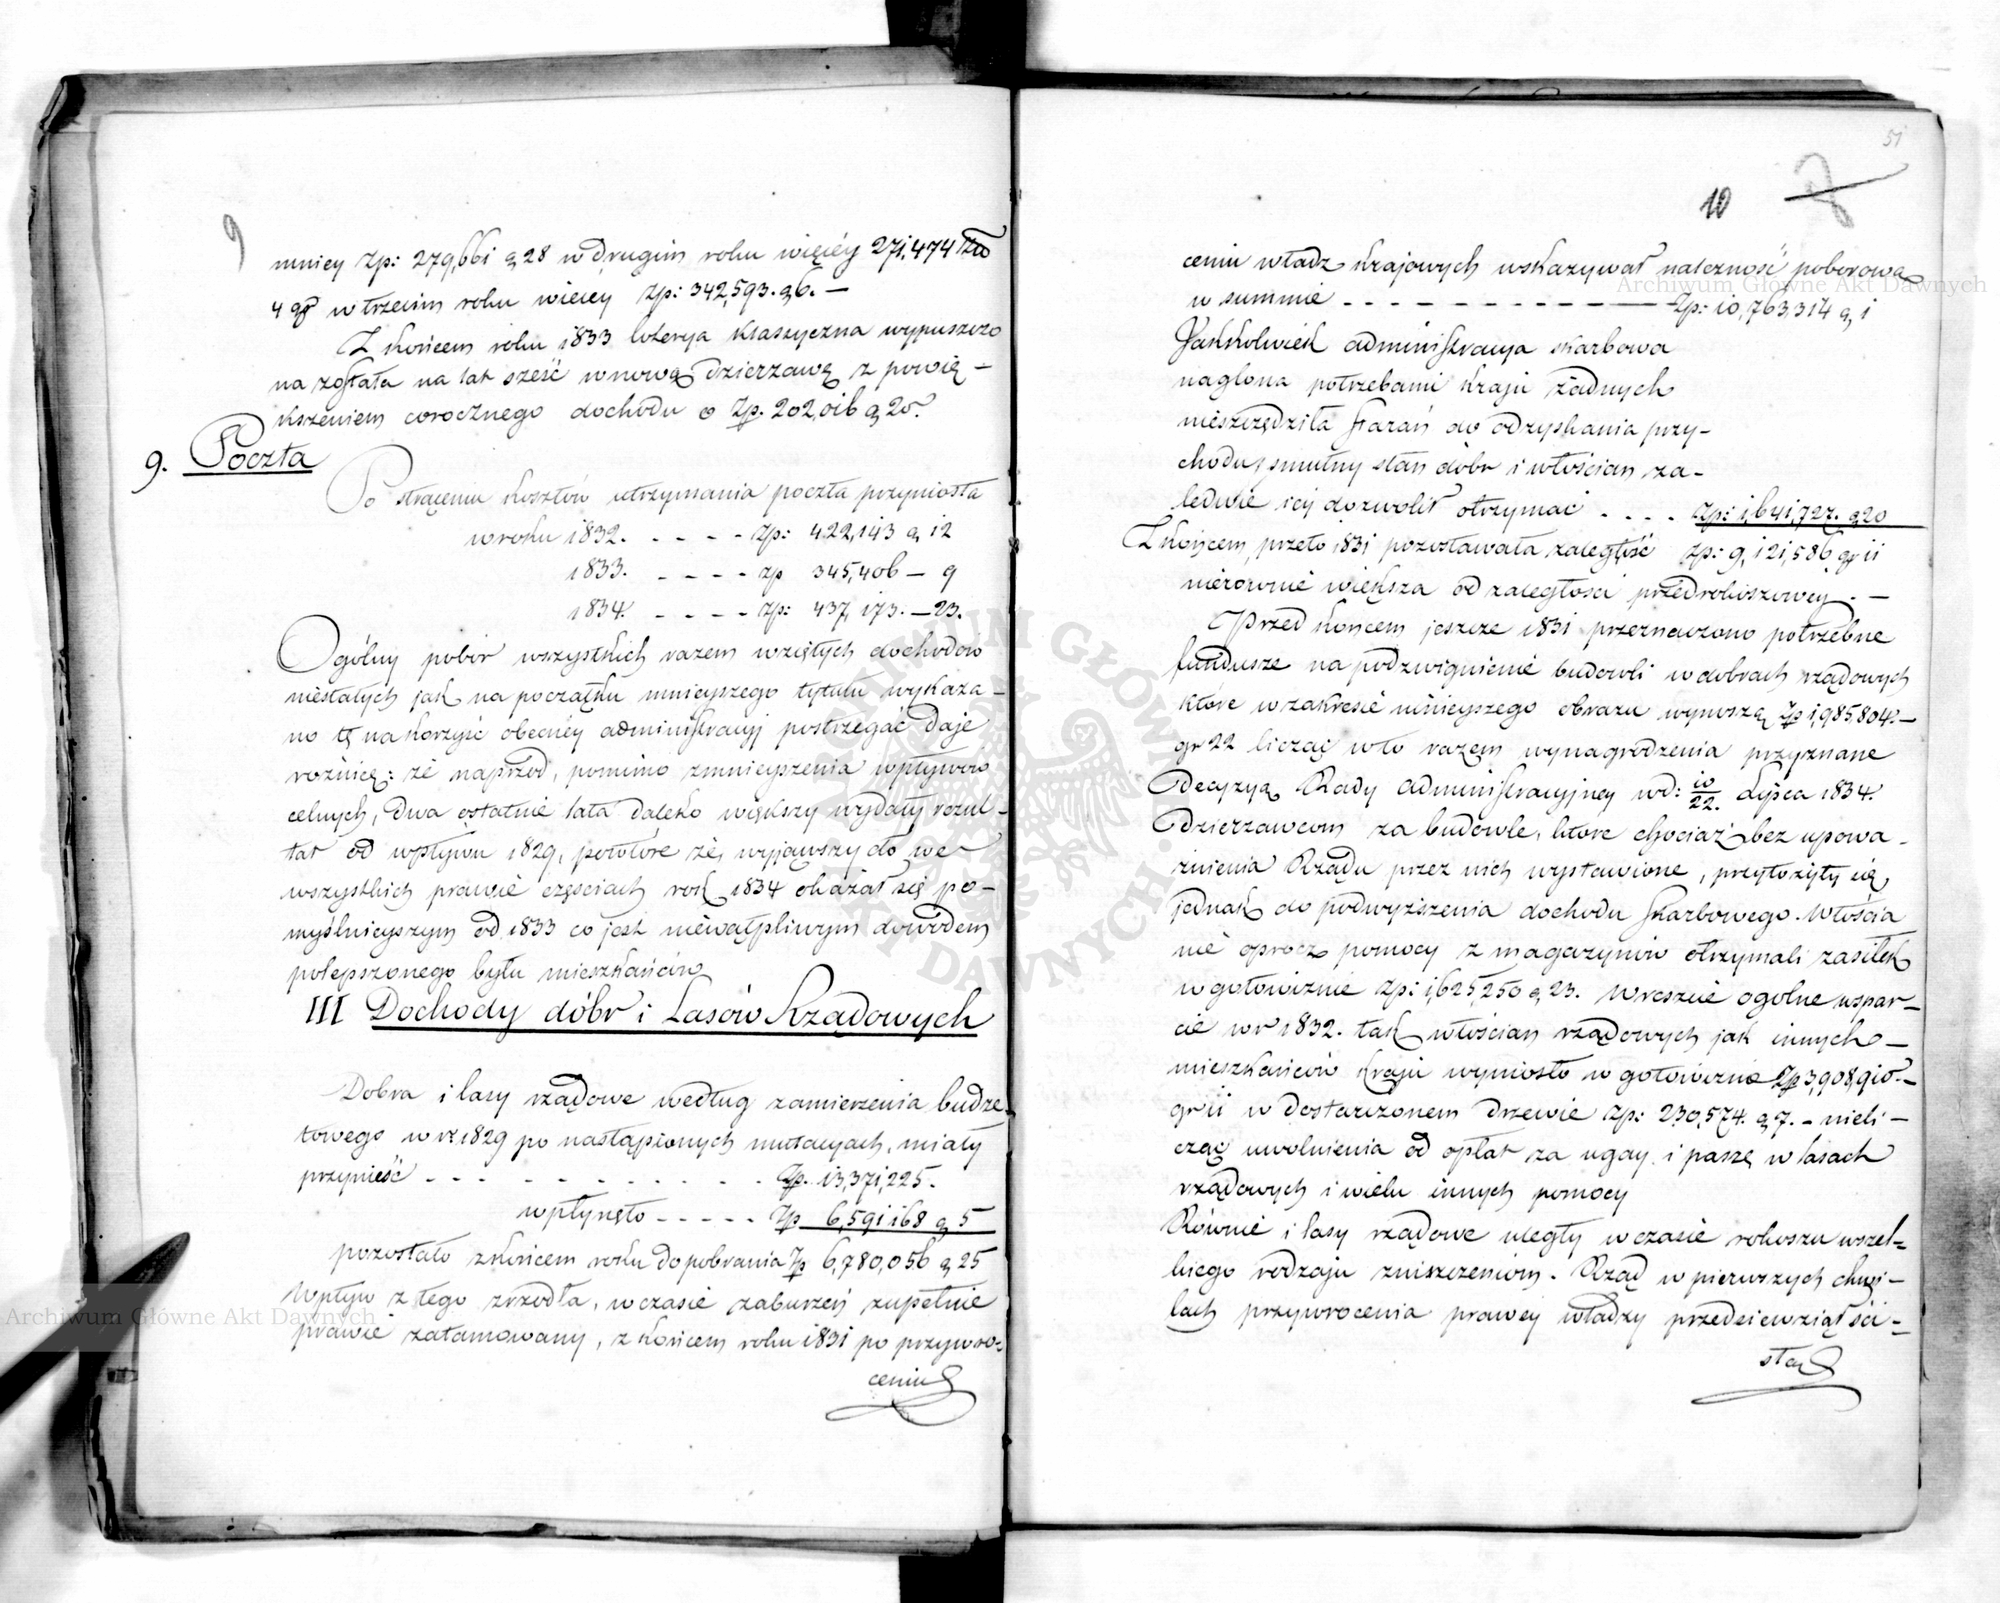 9
mniey Zp: 279,661 g 28 w drugim roku więcéy 271,474 Złp
4 gr w trzecim roku więcey Zp: 342,593. g 6. —
Z końcem roku 1833 loterya klassyczna wypuszczo
na została na lat sześć w nową dzierzawę z powię -
kszeniem corocznego dochodu o Zp. 202,016 g 20.
9. Poczta
Po strąceniu kosztów utrzymania poczta przyniosła
w roku 1832. - - - - - Zp: 422,143 g 12
1833. - - - - zp 345,406 — 9
1834. - - - - Zp: 437,173. — 23.
Ogólny pobór wszystkich razem wziętych dochodów
niestałych jak na początku mnieyszego tytułu wykaza -
no tę na korzyść obecnéy administracyj postrzegać daje
roźnicę: że naprzod, pomimo zmnieyszenia wpływów
celnych, dwa ostatnie lata daleko większy wydały rezul -
tat od wpływu 1829, powtóre że, wyjąwszy cło we
wszystkich prawie częściach rok 1834 okazał się po -
myślnieyszym od 1833 co jest niewątpliwym dowodem
polepszonego bytu mieszkańców
III Dochody dóbr i Lasów Rządowych
Dobra i lasy rządowe według zamierzenia budże
towego w r. 1829 po nastąpionych mutacyach, miały
przynieść - - - - - - - - - - - Zp. 13,371,225.
wpłynęło - - - - - Zp 6,591,168 g 5
pozostało z końcem roku do pobrania Zp 6,780,056 g 25
Wpływ z tego zrzodła, w czasie zaburzeń zupełnie
prawie zatamowany, z końcem roku 1831 po przywro=
ceniu
51
10
7
ceniu władz krajowych wskazywał należność poborową
w summie - - - - - - - - - - - Zp: 10,763,314 g 1
Jakkolwiek administracya skarbowa
naglona potrzebami kraju żadnych
nieszczędziła starań do odzyskania przy-
chodu, smutny stan dóbr i włościan za-
ledwie iéj dozwolił otrzymać - - - - Zp: 1,641,727. g 20
Z końcem przeto 1831 pozostawała zaległość Zp: 9,121,586 gr 11
nierównie większa od zaległości przedrokoszowéy. —
Przed końcem jeszcze 1831 przeznaczono potrzebne
fundusze na podzwignienie budowli w dobrach rządowych
które w zakresie niniejszego obrazu wynoszą Zp 1,985,804. —
gr 22 licząc w to razem wynagrodzenia przyznane
Decyzyą Rady Administracyjnéy w d: 10/22. Lipca 1834.
Dzierzawcom za budowle, które chociaż bez upowa -
żnienia Rządu przez nich wystawione, przyłożyły się
jednak do podwyższenia dochodu skarbowego. Włościa
nie oprocz pomocy z magazynów otrzymali zasiłek
w gotowiznie Zp: 1,625,250 g 23. Wreszcie ogolne wspar—
cie w r 1832. tak włościan rządowych jak innych —
mieszkańców kraju wyniosło w gotowiznie Zp 3,908,910. —
gr 11 w dostarczonem drzewie Zp: 230,574. g 7. - nieli —
cząc uwolnienia od opłat za ugay i paszę w lasach
rządowych i wielu innych pomocy
Równie i lasy rządowe uległy w czasie rokoszu wszel=
kiego rodzaju zniszczeniom. Rząd w pierwszych chwi—
lach przywrocenia prawéy władzy przedsięwziął ści=
sły
Archiwum Główne Akt Dawnych
Archiwum Główne Akt Dawnych
ARCHIWUM GŁÓWNE AKT DAWNYCH